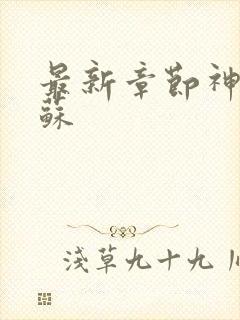 最新章節神
蘇
淺草九十九